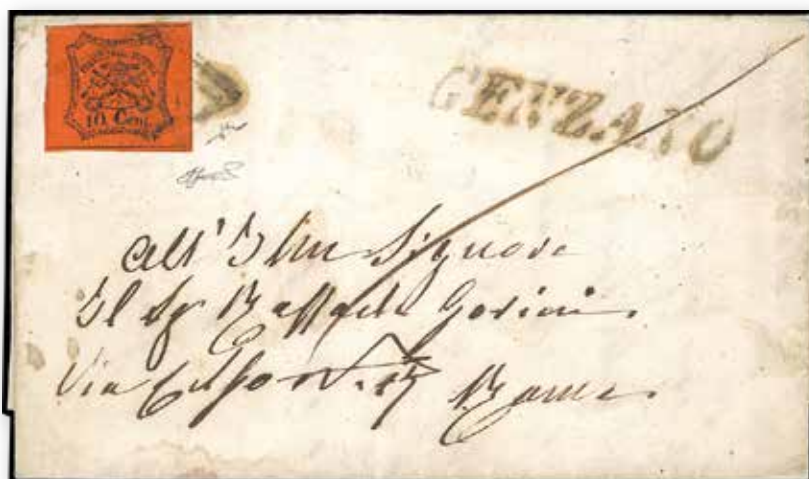 10 Cent.
GENZANO
All' Illmo Signore
Il Sig Raffaele
Via 17 Roma